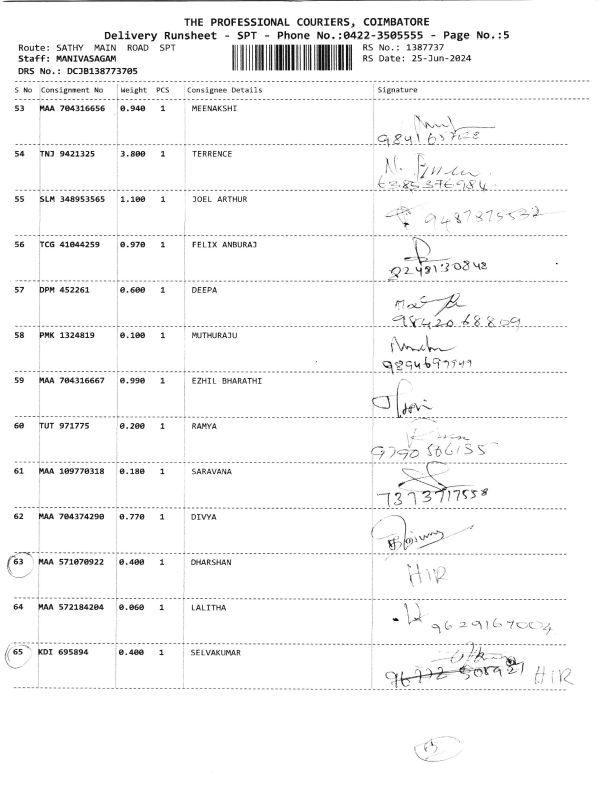 THE PROFESSIONAL COURIERS, COIMBATORE
Delivery Runsheet - SPT - Phone No.:0422-3505555 - Page No.:5
Route: SATHY MAIN ROAD SPT RS No.: 1387737
Staff: MANIVASAGAM RS Date: 25-Jun-2024
DRS No.: DCJB138773705
S No Consignment No Weight PCS Consignee Details Signature
53 MAA 704316656 0.940 1 MEENAKSHI
54 TNJ 9421325 3.800 1 TERRENCE
55 SLM 348953565 1.100 1 JOEL ARTHUR
9487875532
56 TCG 41044259 0.970 1 FELIX ANBURAJ
57 DPM 452261 0.600 1 DEEPA
9842068809
58 PMK 1324819 0.100 1 MUTHURAJU
59 MAA 704316667 0.990 1 EZHIL BHARATHI
60 TUT 971775 0.200 1 RAMYA
9790566155
61 MAA 109770318 0.180 1 SARAVANA
7373717558
62 MAA 704374290 0.770 1 DIVYA
63 MAA 571070922 0.400 1 DHARSHAN HIR
64 MAA 572184204 0.060 1 LALITHA
9629167004
65 KDI 695894 0.400 1 SELVAKUMAR
HIR